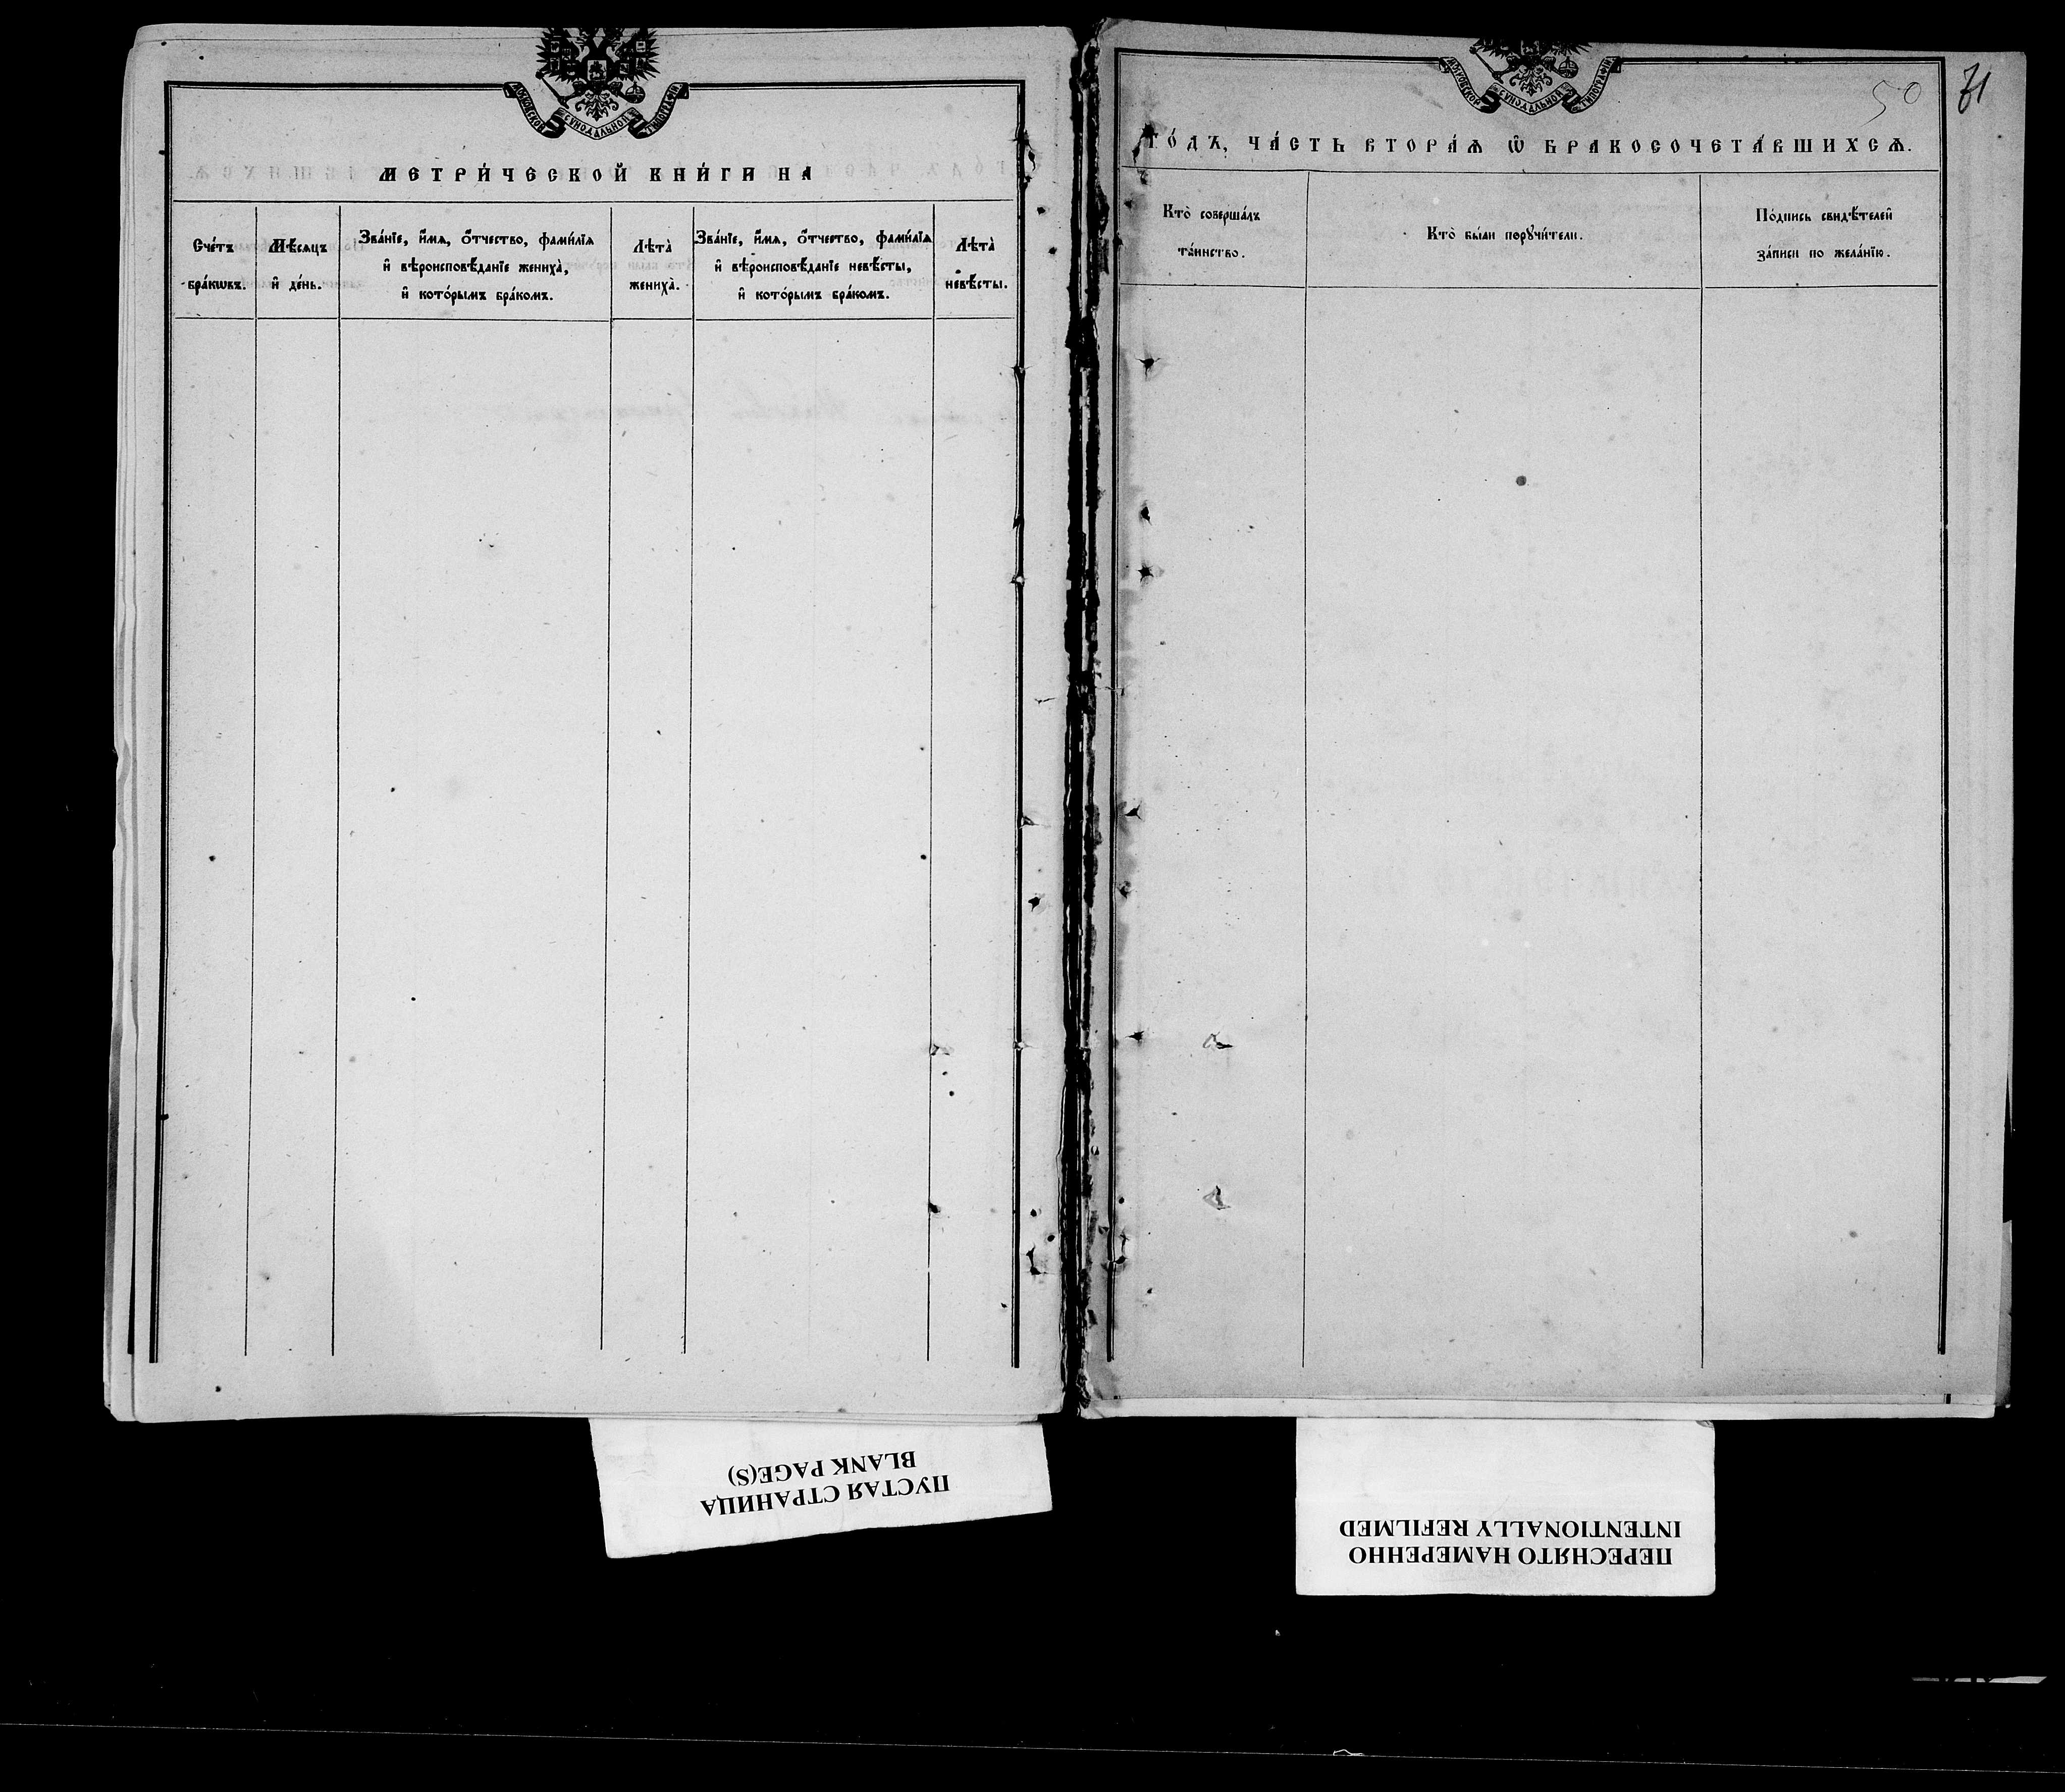 МОСКОВСКОЙ СѴНОДАЛЬНОЙ ТИПОГРАФІИ
МЕТРИ́ЧЕСКОЙ КНИ́ГИ НА
Сче́тъ
бра́кѡвъ.
Мѣ́сяцъ
и҆ де́нь.
Зва́нїе, и҆́мѧ, ѻ҆́тчество, фами́лїѧ
и҆ вѣроисповѣ́данїе жениха̀,
и҆ кото́рымъ бра́комъ.
Лѣта̀
жениха̀.
Зва́нїе, и҆́мѧ, ѻ҆́тчество, фами́лїѧ
и҆ вѣроисповѣ́данїе невѣ́сты,
и҆ кото́рымъ бра́комъ.
Лѣта̀
невѣ́сты.
МОСКОВСКОЙ СѴНОДАЛЬНОЙ ТИПОГРАФІИ
50
71
ГО́ДЪ, ЧА́СТЬ ВТОРА́Ѧ Ѽ БРАКОСОЧЕТА́ВШИХСѦ.
Кто̀ соверша́лъ
та́инство.
Кто̀ бы́ли порꙋчи́тели.
По́дпись свидѣ́телей
за́писи по жела́нїю.
ПУСТАЯ СТРАНИЦА
BLANK PAGE(S)
ПЕРЕСНЯТО НАМЕРЕННО
INTENTIONALLY REFILMED